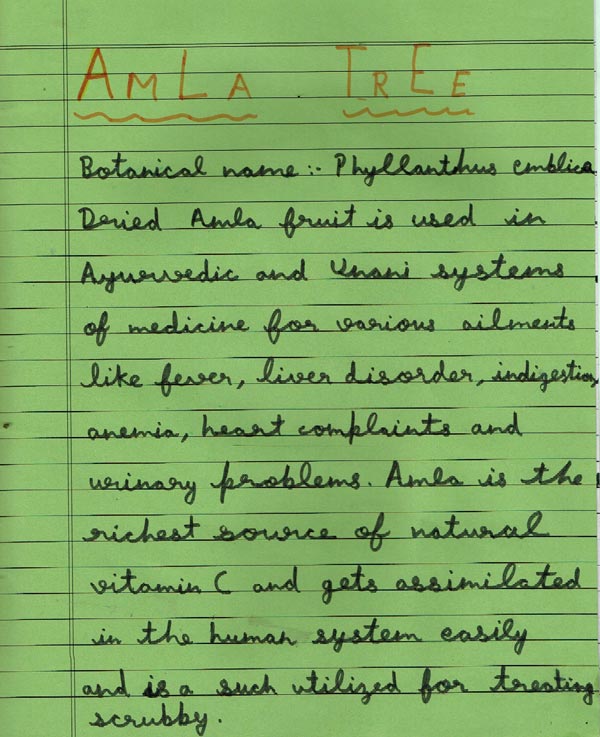 AMLA TREE
Botanical name :- Phyllanthus emblica
Dried Amla fruit is used in
Ayurvedic and Unani systems
of medicine for various ailments
like fever, liver disorder, indigestion,
anemia, heart complaints and
urinary problems. Amla is the
richest source of natural
vitamin C and gets assimilated
in the human system easily
and is a such utilized for treating
scrubby.